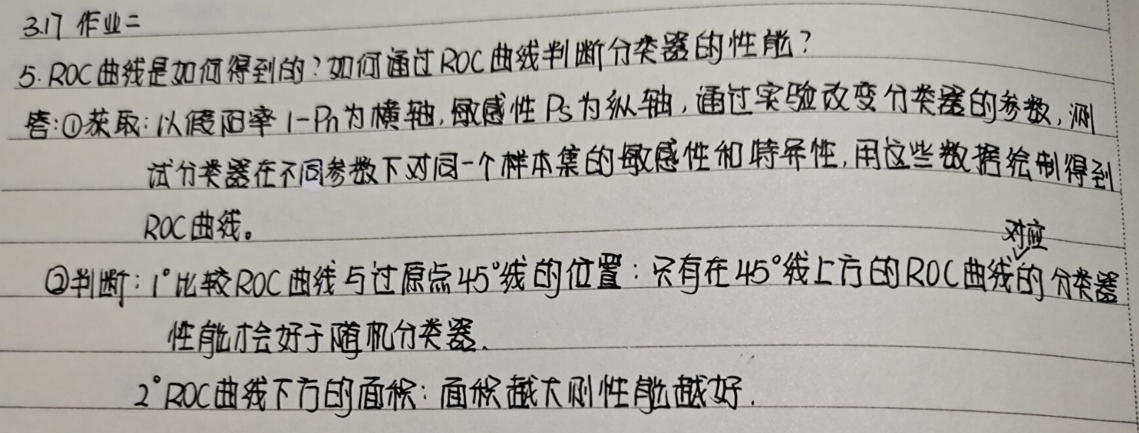 3.17 作业二
5. ROC曲线是如何得到的？如何通过ROC曲线判断分类器的性能？
答:①获取:以假阳率 1-Pn为横轴,敏感性 Ps为纵轴,通过实验改变分类器的参数,测
试分类器在不同参数下对同一个样本集的敏感性和特异性,用这些数据绘制得到
ROC曲线。
②判断:1°比较ROC曲线与过原点45°线的位置:只有在45°线上方的ROC曲线对应的分类器
性能才会好于随机分类器.
2°ROC曲线下方的面积:面积越大则性能越好.